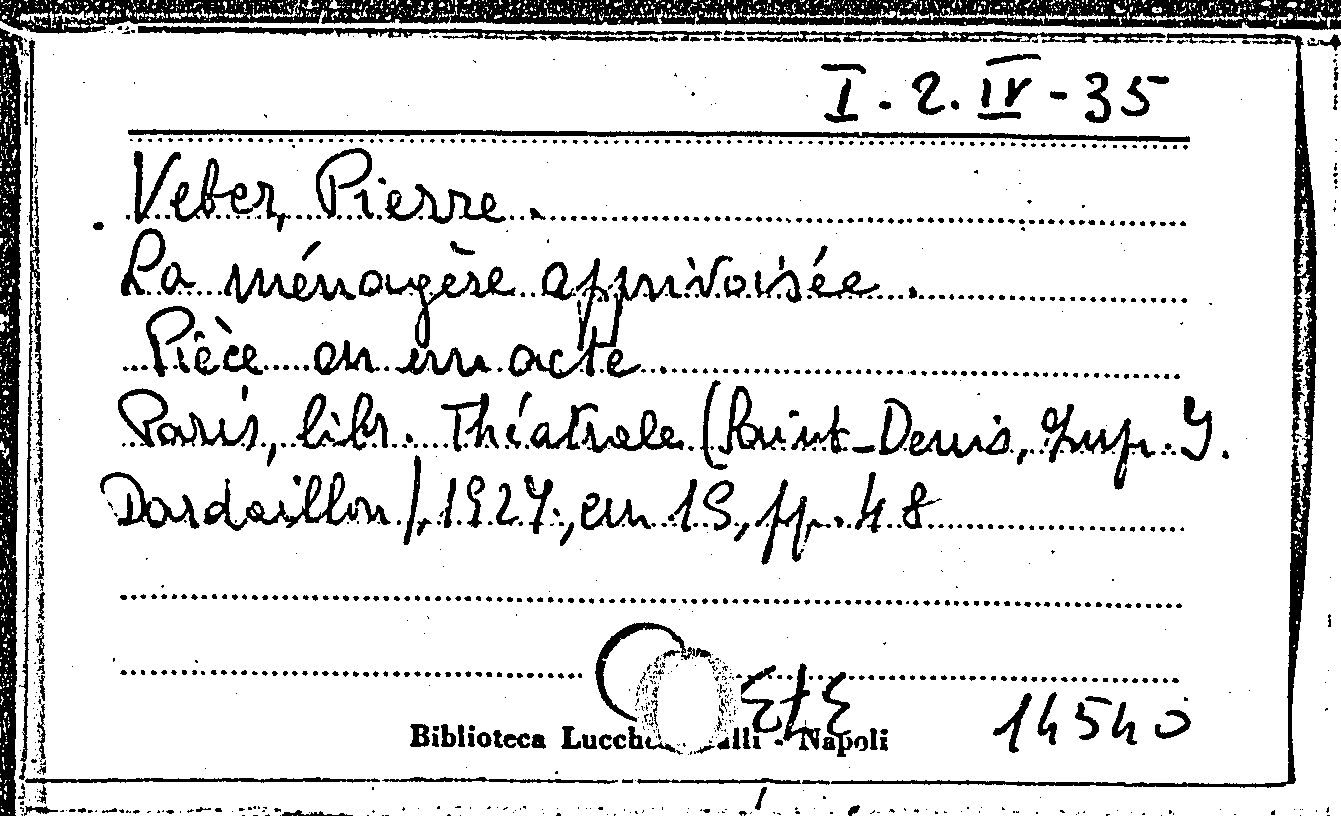 I.2.IV-35
Veber, Pierre.
La ménagère apprivoisée.
Pièce en un acte.
Paris, libr. Théatrale (Saint-Denis, Imp. J.
Dardaillon), 1927, en 18, pp. 48
Biblioteca - Napoli
14540